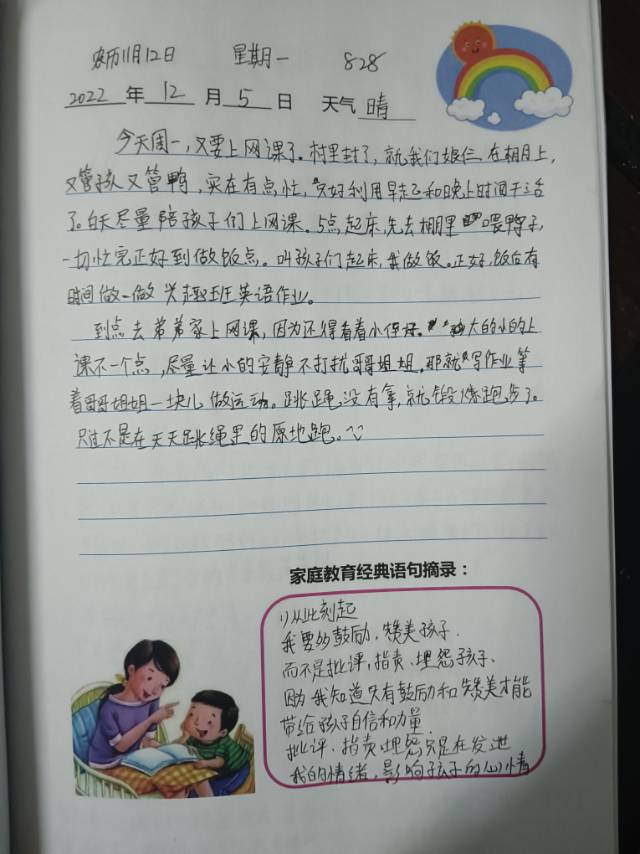 农历11月12日 星期一 828
2022 年 12 月 5 日 天气 晴
今天周一,又要上网课了。村里封了,就我们娘仨在棚上,
又管孩又管鸭,实在有点忙,只好利用早起和晚上时间干活
了。白天尽量陪孩子们上网课。5点起床,先去棚里喂鸭子,
一切忙完正好到做饭点。叫孩子们起床,我做饭。正好,饭后有
时间做一做兴趣班英语作业。
到点去弟弟家上网课,因为还得看着小侄子。大的小的上
课不一个点,尽量让小的安静不打扰哥哥姐姐。那就写作业等
着哥哥姐姐一块儿做运动。跳绳没有拿,就锻炼跑步了。
只过不是在天天跳绳里的原地跑。
家庭教育经典语句摘录:
1)从此刻起
我要多鼓励,赞美孩子.
而不是批评,指责,埋怨孩子.
因为我知道只有鼓励和赞美才能
带给孩子自信和力量.
批评、指责、埋怨只是在发泄
我的情绪,影响孩子的心情